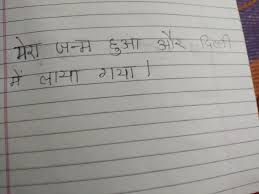 मेरा जन्म हुआ और दिल्ली
में लाया गया।